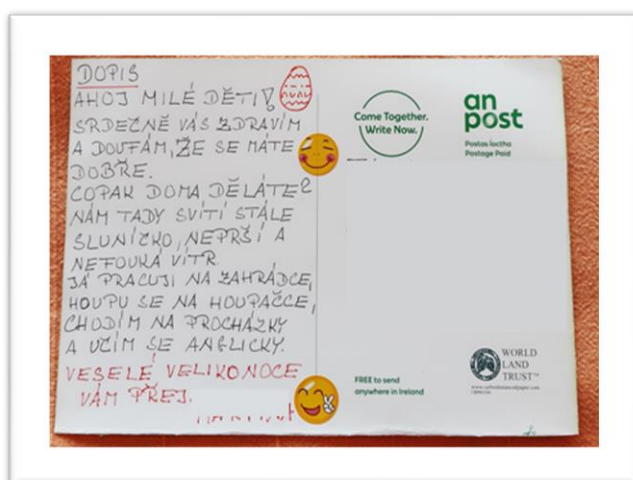 DOPIS
AHOJ MILÉ DĚTI!
SRDEČNĚ VÁS ZDRAVÍM
A DOUFÁM, ŽE SE MÁTE
DOBŘE.
COPAK DOMA DĚLÁTE?
NÁM TADY SVÍTÍ STÁLE
SLUNÍČKO, NEPRŠÍ A
NEFOUKÁ VÍTR.
JÁ PRACUJI NA ZAHRÁDCE,
HOUPU SE NA HOUPAČCE,
CHODÍM NA PROCHÁZKY
A UČÍM SE ANGLICKY.
VESELÉ VELIKONOCE
VÁM PŘEJ.
Come Together.
Write Now.
an
post
Postas Íoctha
Postage Paid
FREE to send
anywhere in Ireland
WORLD
LAND
TRUST™
www.carbonbalancedpaper.com